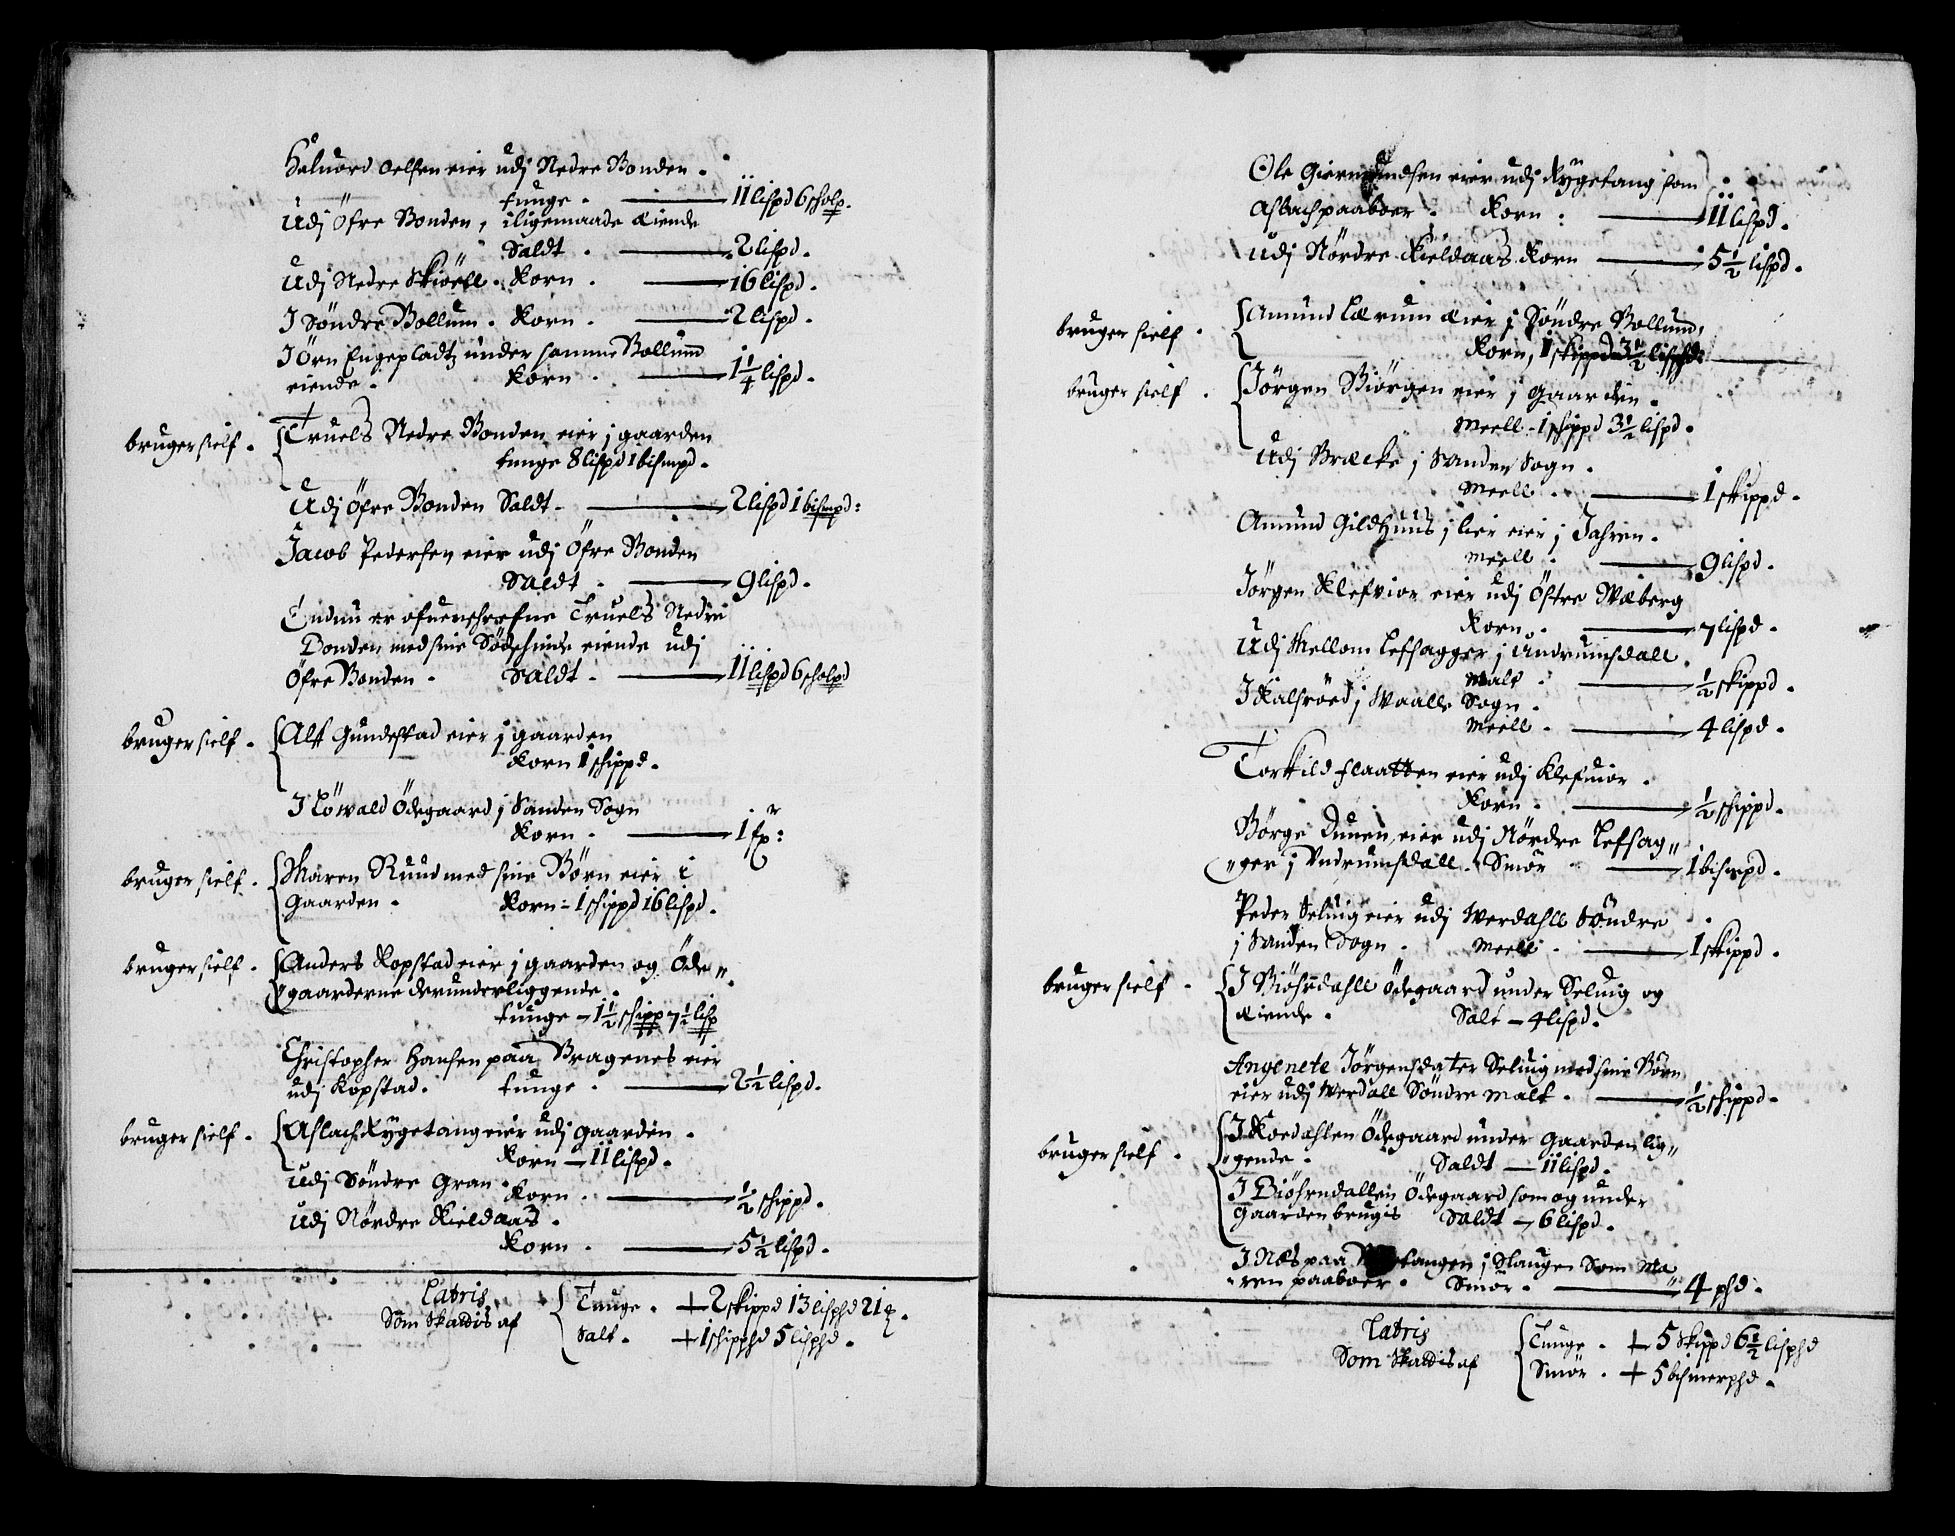 Haluord Oelsen eier udj Nedre Bonden .
tunge . 11 lispd 6 scholp.
Udj Öfre Bonden, iligemaade Eiende
Saldt . 2 lispd.
Udj Nedre Skioell . Korn . 16 lispd.
J Söndre Bollum . Korn . 2 lispd.
J Örn Engepladtz under samme Bollum
eiende . Korn . 1 1/4 lispd.
bruger sielf . Truels Nedre Bonden eier j gaarden
tunge 8 lispd 1 bismpd .
Udj Öfre Bonden Saldt . 2 lispd 1 bismpd:
Jacob Pedersen, eier udj Öfre Bonden
Saldt . 9 lispd.
Endnu er ofuenschrefne Truels Nedre
Bonden med sine Södschinde eiende udj
Öfre Bonden . Saldt . 11 lispd 6 scholpd
bruger sielf . Alf Gundestad eier j gaarden
Korn 1 schippd .
J Löwald Ödegaard j Sanden Sogn
Korn . 1 fr:
bruger sielf . Maren Ruud med sine Börn eier i
Gaarden . Korn - 1 schippd 16 lispd.
bruger sielf . Anders Kopstad eier j gaarden og Öde„
„gaarderne derunderliggende .
tunge - 1 1/2 schipp 7 1/2 lisp
Christopher Hansen paa Bragenes eier
udj Kopstad . tunge . 2 1/2 lispd.
bruger sielf . Aslach Rygetang eier udj gaarden .
Korn - 11 lispd .
Udj Söndre Gran .
Korn . 1/2 schippd .
Udj Nördre Kieldaas .
Korn . 5 1/2 lispd .
Latris
Som Skatdis af
Tunge . + 2 skippd 13 lisphd 21
Salt . + 1 schipphd 5 lisphd .
Ole Giermundsen eier udj Rygetang som
Aslach paaboer . Korn : 11 lispd .
Udj Nördre Kieldaas Korn 5 1/2 lispd .
bruger sielf . Amund Lærum Eier j Söndre Bollum,
Korn, 1 skippd 3 1/2 lisphd:
bruger sielf . Jörgen Biörgen eier j gaarden .
Meell - 1 schippd 3 1/2 lispd .
Udj Bræcke j Sanden Sogn .
Meell . 1 skippd .
Amund Gildhuus j Lier eier j Jahren .
Meell . 9 lispd .
Jörgen Klefvior eier udj Östre Wæberg
Korn . 7 lispd .
Udj Mellom Lefsagger j Undrumsdall .
Malt . 1/2 skippd .
J Kalsröed j Waalle Sogn .
Meell . 4 lispd .
Torkild Flaatten eier udj Klefuior .
Korn . 1/2 schippd .
Börge Duuen, eier udj Nördre Lefsag„
„ger j Undrumsdall . Smör 1 bismpd .
Peder Seluig eier udj Werdahll Söndre
j Sanden Sogn . Meell . 1 skippd .
bruger sielf . J Biöhrdahll Ödegaard under Seluig og
Eiende . Salt - 4 lispd .
Angenete Jörgensdater Seluig med sine Börn
eier udj Werdall Söndre Malt . 1/2 schippd .
bruger sielf . J Koedahlen Ödegaard under Gaarden lig„
„gende . Saldt - 11 lispd .
J Biöhrndallen Ödegaard som og under
Gaarden brugis Saldt - 6 lispd .
J Næs paa tangen j Slaugen Som Ma
„ren paaboer . Smör . 4 phd .
Latris
Som Skatdis af
Tunge . + 5 Skippd 6 1/2 lisphd
Smör . + 5 bismerphd .